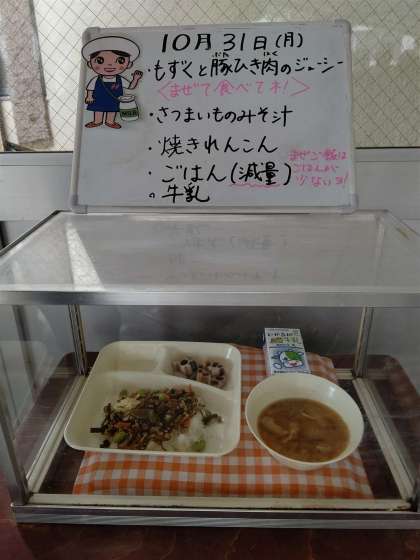 10月31日(月)
・もずくと豚ひき肉のジューシー
ぶた にく
<まぜて食べてネ!>
・さつまいものみそ汁
・焼きれんこん
・ごはん(減量)
・牛乳
まぜご飯は
ごはんが
少ないヨ!
MILK
牛乳